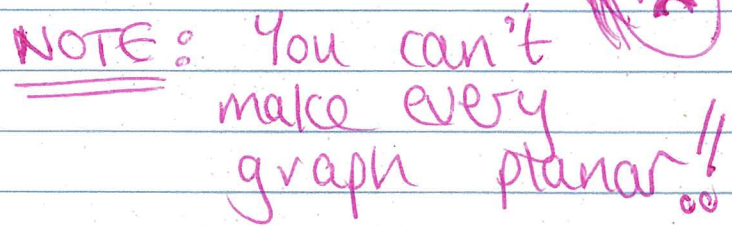 NOTE: You can't
make every
graph planar!!